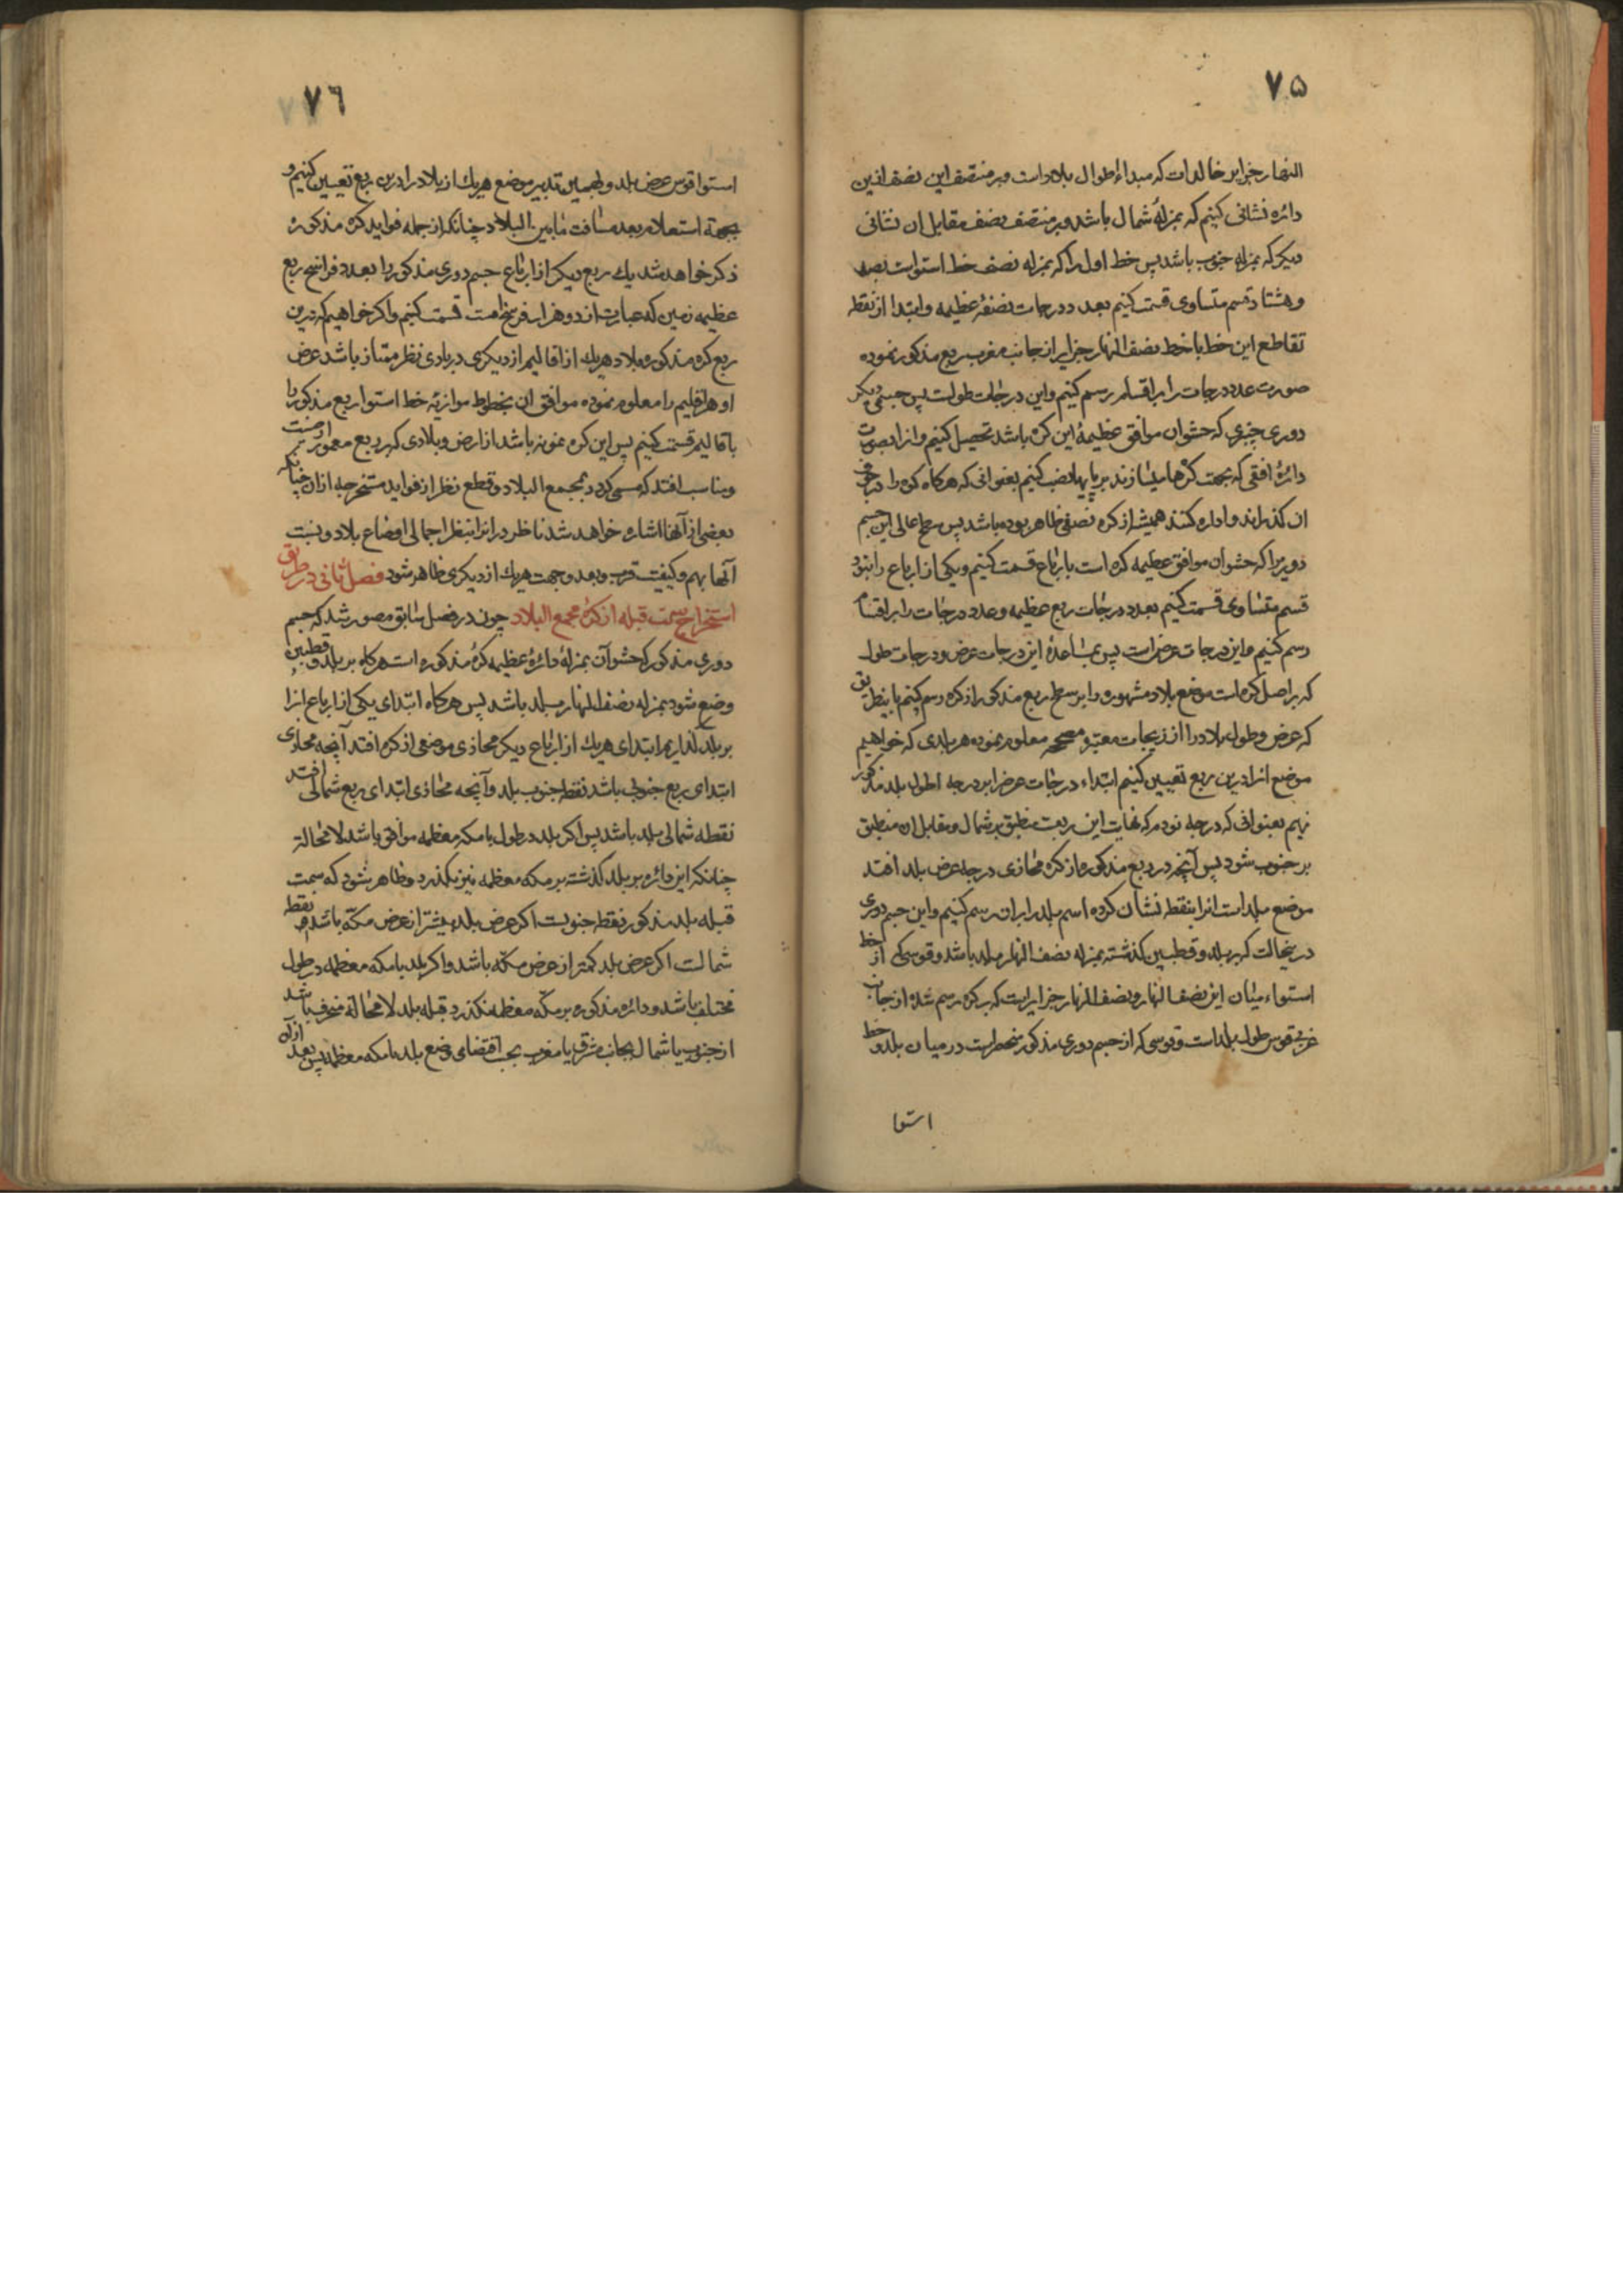 ۷۵
النهار جزایر خالدات که مبداء طوال بلاد است و بر منتصف این نصف ازین
دائره نشانی کنیم که بمنزلهٔ شمال باشد و بر منتصف نصف مقابل ان نشانی
دیکر که بمنزله جنوب باشد پس خط اول را که بمنزله نصف خط استواست بصد
و هشتاد قسم متساوی قسمت کنیم بعدد درجات نصفهٔ عظیمه و ابتدا از نقطه
تقاطع این خط با خط نصف النهار جزایر از جانب مغرب ربع مذکور نموده
صورت عدد درجات را بر اقسام رسم کنیم و این درجات طولست پس جسمی دیکر
دوری چنبری که حشو ان موافق عظیمهٔ این کره باشد تحصیل کنیم و انرا بصورت
دائرهٔ افقی که بجهت کرها میسازند بر پایها نصب کنیم بعنوانی که هرکاه کره را در جوف
ان کذراند و اداره کنند همیشه از کره نصفی ظاهر بوده باشد پس سطح اعالی این جسم
دویرا که حشو ان موافق عظیمه کره است بارباع قسمت کنیم و یکی از ارباع را بنود
قسم متساوی قسمت کنیم بعدد درجات ربع عظیمه و عدد درجات را بر اقسام
رسم کنیم و این درجات عرض است پس بمساعدهٔ این درجات عرض و درجات طول
که بر اصل کره است موضع بلاد مشهوره را بر سطح ربع مذکور از کره رسم کنیم باینطریق
که عرض و طول بلاد را از زیجات معتبر و مصححه معلوم نموده هر بلدی که خواهیم
موضع انرا درین ربع تعیین کنیم ابتداء درجات عرض را بر درجه اطول بلد مذکور
نهیم بعنوانی که درجه نودم که نهایت این ربعست منطبق بر شمال و مقابل ان منطبق
بر جنوب شود پس آنچه در ربع مذکوره از کره محاذی درجه عرض بلد افتد
موضع بلد است انرا بنقطه نشان کرده اسم بلد را بران رسم کنیم و این جسم دوری
درینحالت که بر بلد و قطبین کذشته بمنزله نصف النهار بلد باشد و قوسی که از خط
استواء میان این نصف النهار و نصف النهار جزایرست که بر کره رسم شده از جانب
غربی قوس طول بلد است و قوسی که از جسم دوری مذکور منحصر است در میان بلد و خط
استوا
۷۶
استوا قوس عرض بلد و بهمین تدبیر موضع هریك از بلاد را درین ربع تعیین کنیم و
بجهة استعلام بعد مسافت مابین البلاد چنانکه از جمله فواید کره مذکوره
ذکر خواهد شد یك ربع دیکر از ارباع جسم دوری مذکور را بعدد فراسخ ربع
عظیمه زمین که عبارت از دو هزار فرسخ است قسمت کنیم و اکر خواهیم که درین
ربع کره مذکوره بلاد هریك از اقالیم از دیکری در بادی نظر ممتاز باشد عرض
او هر اقلیم را معلوم نموده موافق ان بخطوط موازیه خط استوا ربع مذکور را
باقالیم قسمت کنیم پس این کره نمونه باشد از ارض و بلادی که بر ربع معمور ارضست
و مناسب افتد که مسمی کردد بمجمع البلاد و قطع نظر از فواید مستخرجه ازان چنانکه
ببعضی از آنها اشاره خواهد شد ناظر در انرا بنظر اجمالی اوضاع بلاد و نسبت
آنها بهم و کیفیت قرب و بعد و جهت هریك از دیکری ظاهر شود فصل ثانی در طریق
استخراج سمت قبله از کره مجمع البلاد چون در فصل سابق مصور شد که جسم
دوری مذکور که حشو آن بمنزلهٔ دائرهٔ عظیمه کرهٔ مذکوره است هرکاه بر بلد و قطبین
وضع شود بمنزله نصف النهار بلد باشد پس هرکاه ابتدای یکی از ارباع انرا
بر بلد کذاریم ابتدای هریك از ارباع دیکر محاذی موضعی از کره افتد آنچه محاذی
ابتدای ربع جنوبی باشد نقطه جنوب بلد و آنچه محاذی ابتدای ربع شمالی افتد
نقطه شمالی بلد باشد پس اکر بلد در طول با مکه معظمه موافق باشد لامحالة
چنانکه این دائره بر بلد کذشته بر مکه معظمه نیز بکذرد و ظاهر شود که سمت
قبله بلد مذکور نقطه جنوبست اکر عرض بلد بیشتر از عرض مکّه باشد و نقطه
شمالست اکر عرض بلد کمتر از عرض مکّه باشد و اکر بلد با مکه معظمه در طول
مختلف باشد و دائره مذکوره بر مکّه معظمه نکذرد قبله بلد لامحالة منحرف باشد
از جنوب یا شمال بجانب مشرق یا مغرب بحسب اقتضای وضع بلد با مکه معظمه پس بعد ازآنکه